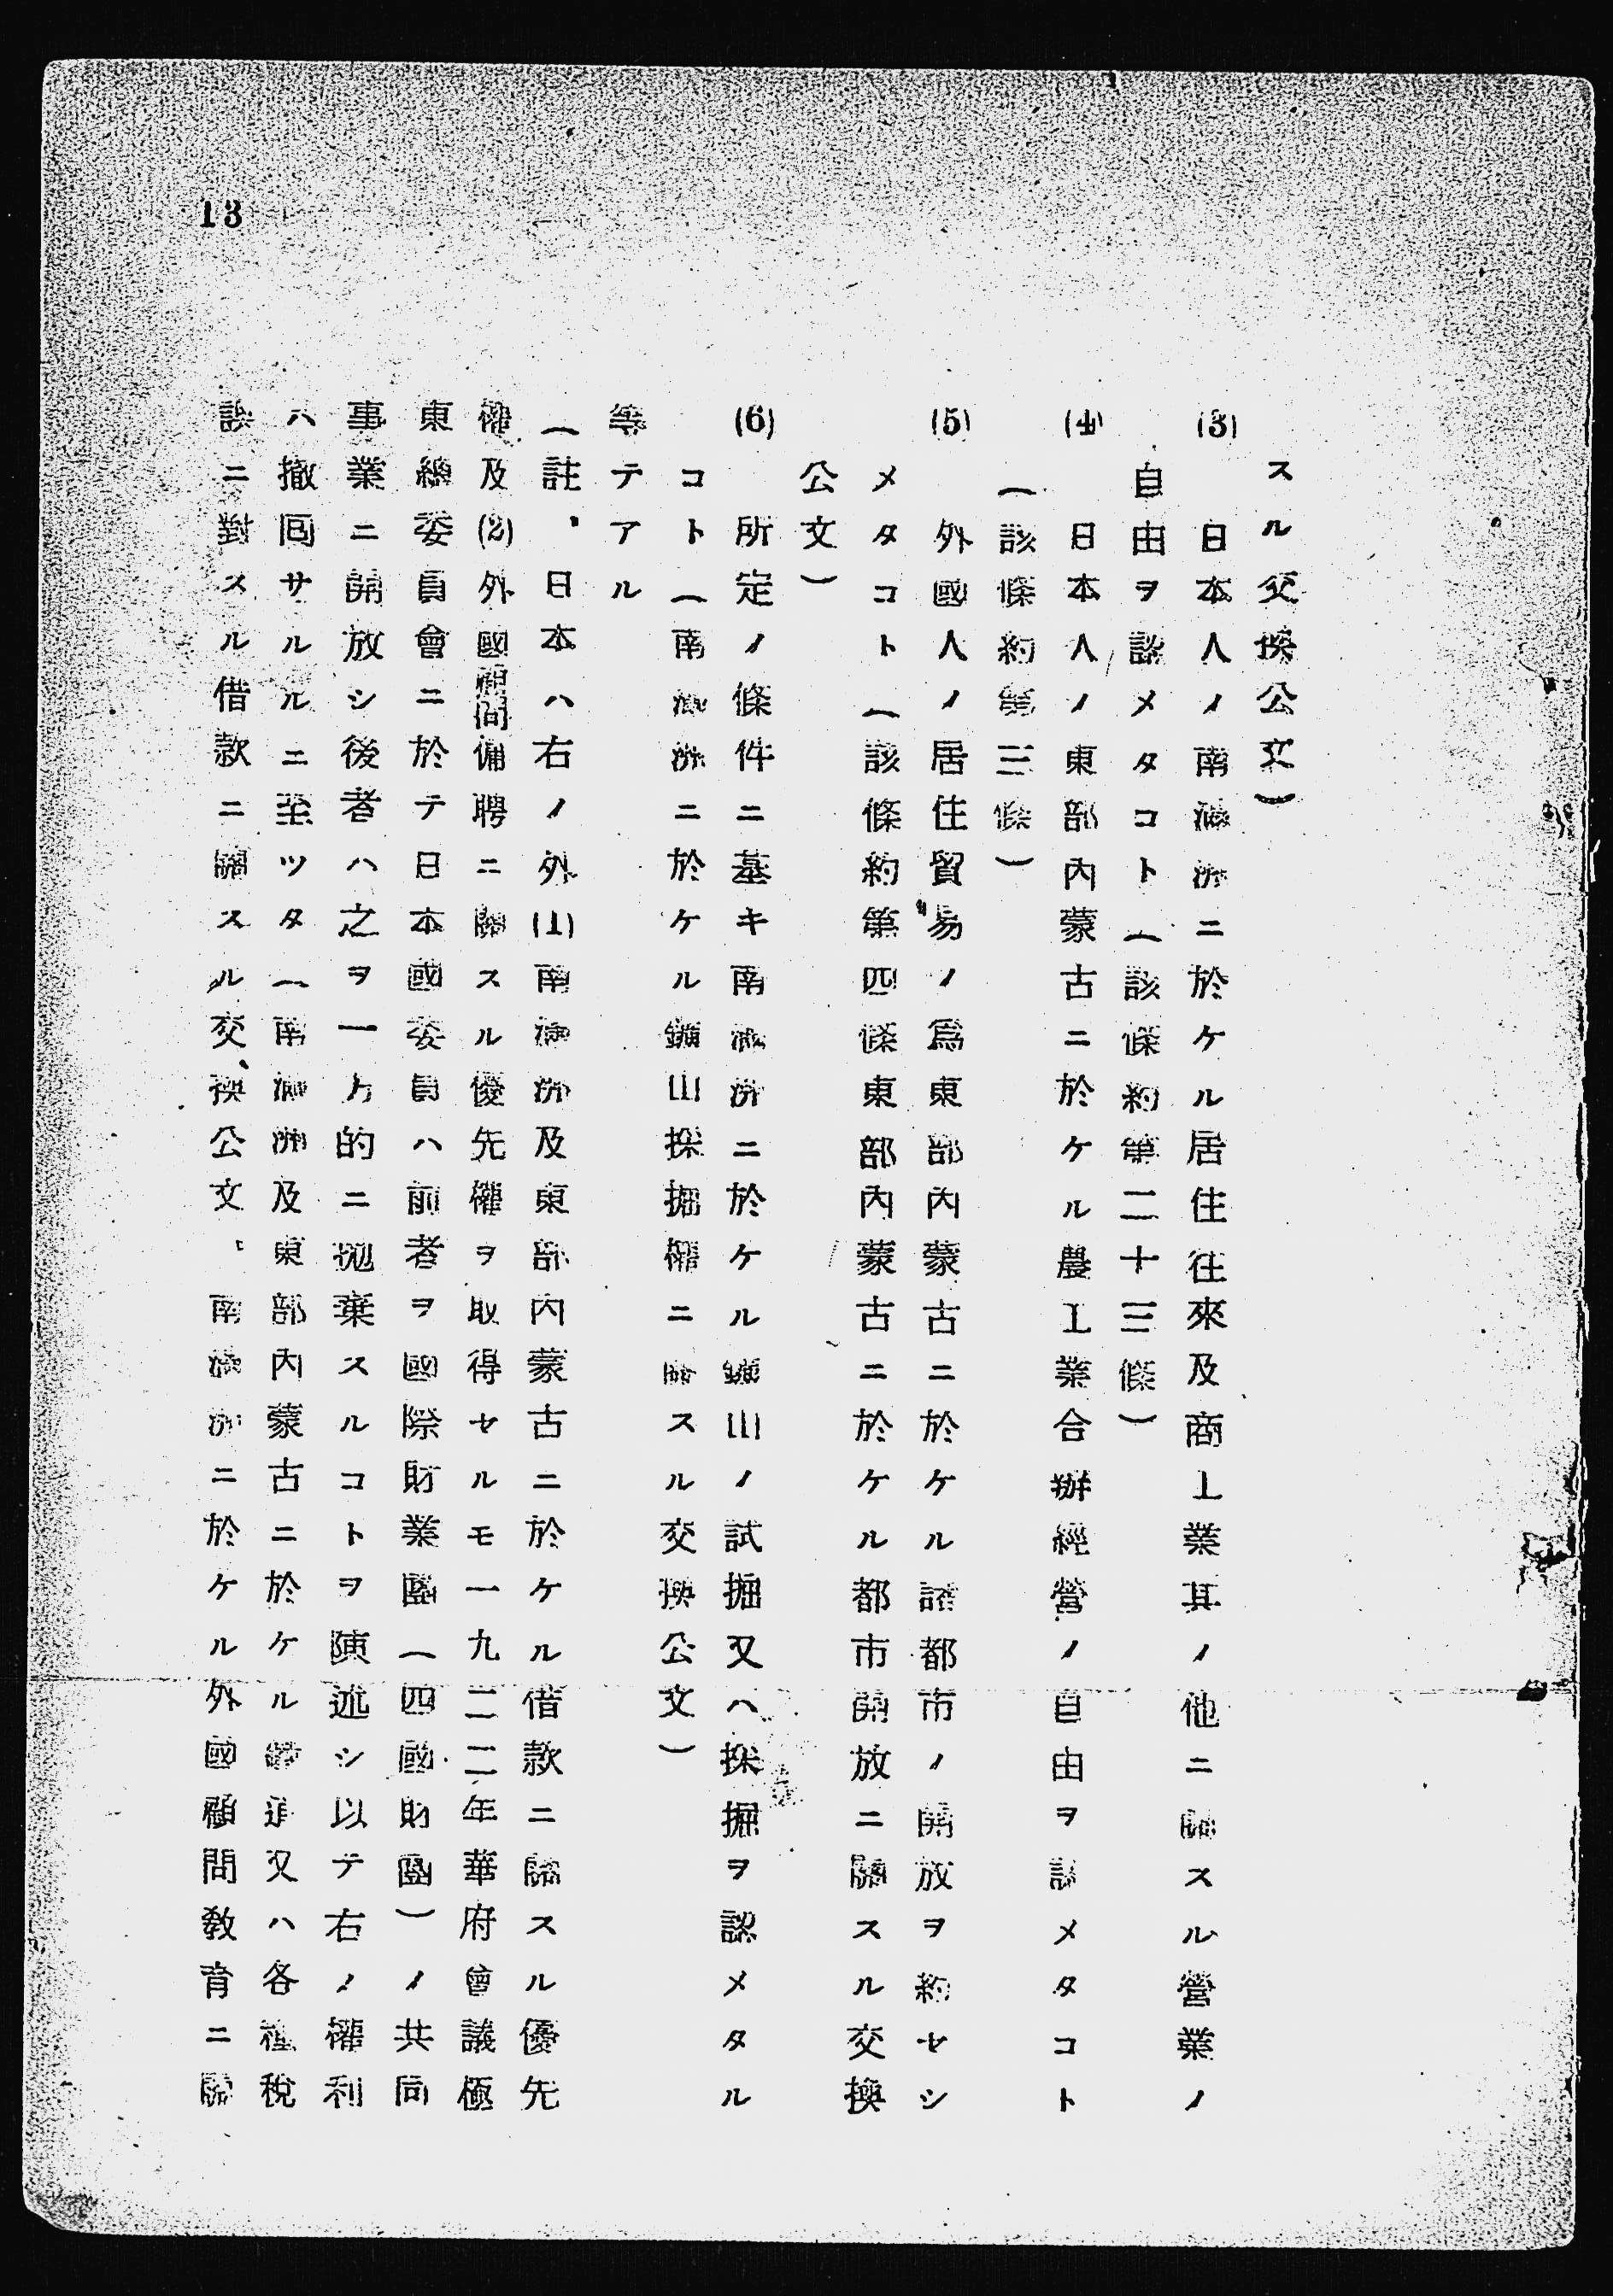 13
スル交換公文)
(3) 日本人ノ南滿洲ニ於ケル居住往來及商工業其ノ他ニ關スル營業ノ
自由ヲ認メタコト(該條約第二十三條)
(4) 日本人ノ東部內蒙古ニ於ケル農工業合辦經營ノ自由ヲ認メタコト
(該條約第三條)
(5) 外國人ノ居住貿易ノ爲東部內蒙古ニ於ケル諸都市ノ開放ヲ約セシ
メタコト(該條約第四條東部內蒙古ニ於ケル都市開放ニ關スル交換
公文)
(6) 所定ノ條件ニ基キ南滿洲ニ於ケル鑛山ノ試掘又ハ採掘ヲ認メタル
コト(南滿洲ニ於ケル鑛山採掘權ニ關スル交換公文)
等テアル
(註、日本ハ右ノ外(1)南滿洲及東部內蒙古ニ於ケル借款ニ關スル優先
權及(2)外國顧問傭聘ニ關スル優先權ヲ取得セルモ一九二二年華府會議極
東總委員會ニ於テ日本國委員ハ前者ヲ國際財業團(四國財團)ノ共同
事業ニ開放シ後者ハ之ヲ一方的ニ拋棄スルコトヲ陳述シ以テ右ノ權利
ハ撤囘サルルニ至ツタ(南滿洲及東部內蒙古ニ於ケル鐵道又ハ各種稅
課ニ對スル借款ニ關スル交換公文、南滿洲ニ於ケル外國顧問敎育ニ關